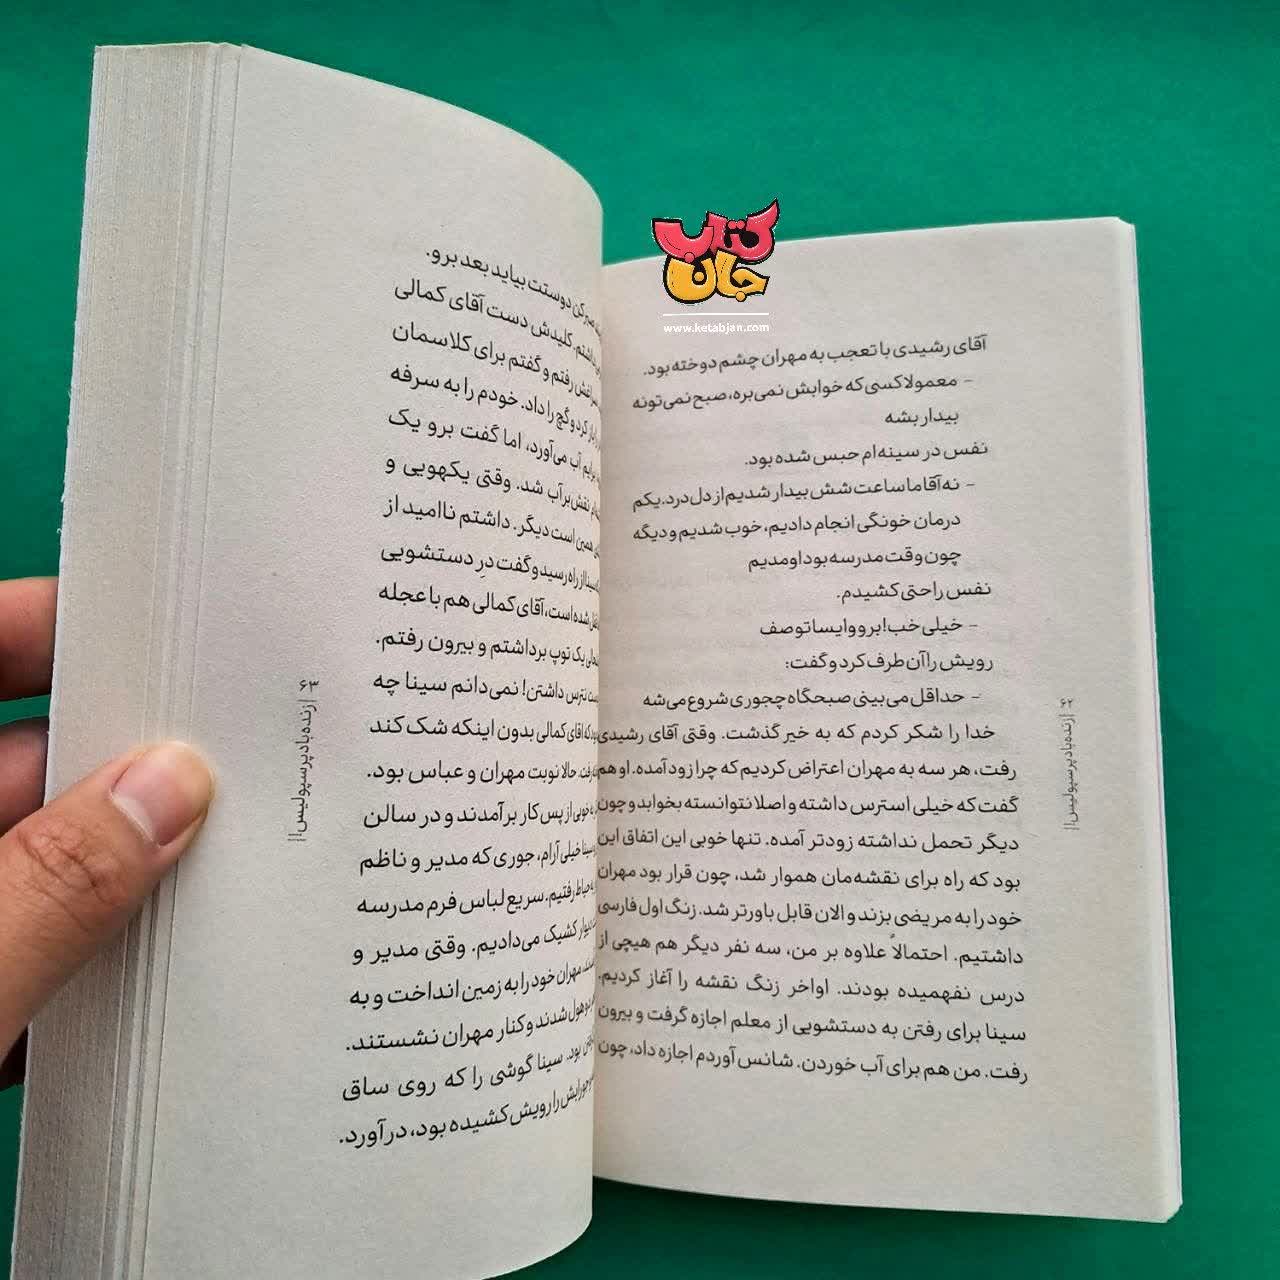 کتاب
جان
www.ketabjan.com
آقای رشیدی با تعجب به مهران چشم دوخته بود.
- معمولا کسی که خوابش نمی‌بره، صبح نمی‌تونه
بیدار بشه
نفس در سینه‌ام حبس شده بود.
- نه آقا ما ساعت شش بیدار شدیم از دل درد. یکم
درمان خونگی انجام دادیم، خوب شدیم و دیگه
چون وقت مدرسه بود اومدیم
نفس راحتی کشیدم.
- خیلی خب! برو وایسا تو صف
رویش را آن طرف کرد و گفت:
- حداقل می‌بینی صبحگاه چجوری شروع می‌شه
خدا را شکر کردم که به خیر گذشت. وقتی آقای رشیدی
رفت، هر سه به مهران اعتراض کردیم که چرا زود آمده. او هم
گفت که خیلی استرس داشته و اصلا نتوانسته بخوابد و چون
دیگر تحمل نداشته زودتر آمده. تنها خوبی این اتفاق این
بود که راه برای نقشه‌مان هموار شد، چون قرار بود مهران
خود را به مریضی بزند و الان قابل باورتر شد. زنگ اول فارسی
داشتیم. احتمالاً علاوه بر من، سه نفر دیگر هم هیچی از
درس نفهمیده بودند. اواخر زنگ نقشه را آغاز کردیم.
سینا برای رفتن به دستشویی از معلم اجازه گرفت و بیرون
رفت. من هم برای آب خوردن. شانس آوردم اجازه داد، چون
۶۲ | زنده باد پرسپولیس!|
صبر کن دوستت بیاید بعد برو.
کلیدش دست آقای کمالی
رفتم و گفتم برای کلاسمان
باز کرد و گچ را داد. خودم را به سرفه
برایم آب می‌آورد، اما گفت برو یک
نقش بر آب شد. وقتی یکهویی و
همین است دیگر. داشتم ناامید از
سینا از راه رسید و گفت درِ دستشویی
شده است، آقای کمالی هم با عجله
یک توپ برداشتم و بیرون رفتم.
نترس داشتن! نمی‌دانم سینا چه
که آقای کمالی بدون اینکه شک کند
رفت. حالا نوبت مهران و عباس بود.
به خوبی از پس کار برآمدند و در سالن
سینا خیلی آرام، جوری که مدیر و ناظم
حیاط رفتیم. سریع لباس فرم مدرسه
دیوار کشیک می‌دادیم. وقتی مدیر و
مهران خود را به زمین انداخت و به
هول شدند و کنار مهران نشستند.
بود. سینا گوشی را که روی ساق
جورابش را رویش کشیده بود، درآورد.
۶۳ | زنده باد پرسپولیس!|